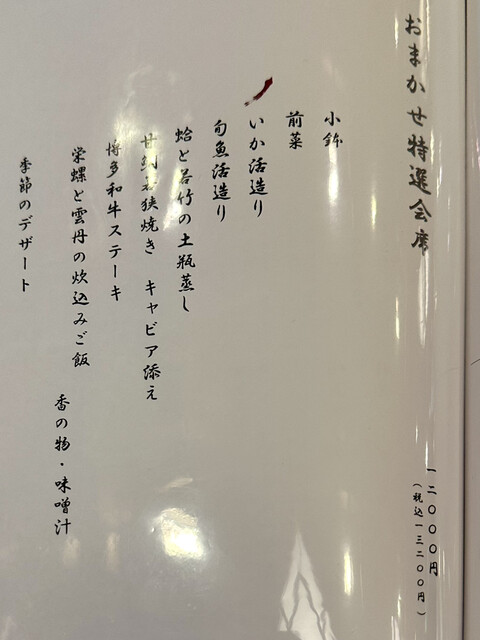 おまかせ特選会席
一二〇〇〇円
（税込一三二〇〇円）
小鉢
前菜
いか活造り
旬魚活造り
蛤と若竹の土瓶蒸し
甘鯛若狭焼き　キャビア添え
博多和牛ステーキ
栄螺と雲丹の炊込みご飯
香の物・味噌汁
季節のデザート